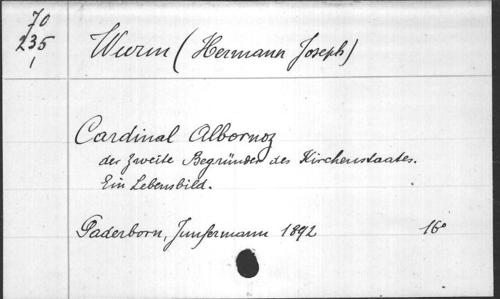 70
235
1
Wurm (Hermann Joseph)
Cardinal Albornoz
der zweite Begründer des Kirchenstaates.
Ein Lebensbild.
Paderborn, Junfermann 1892 16°